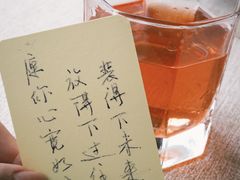 愿你心宽
放得下过往
装得下未来